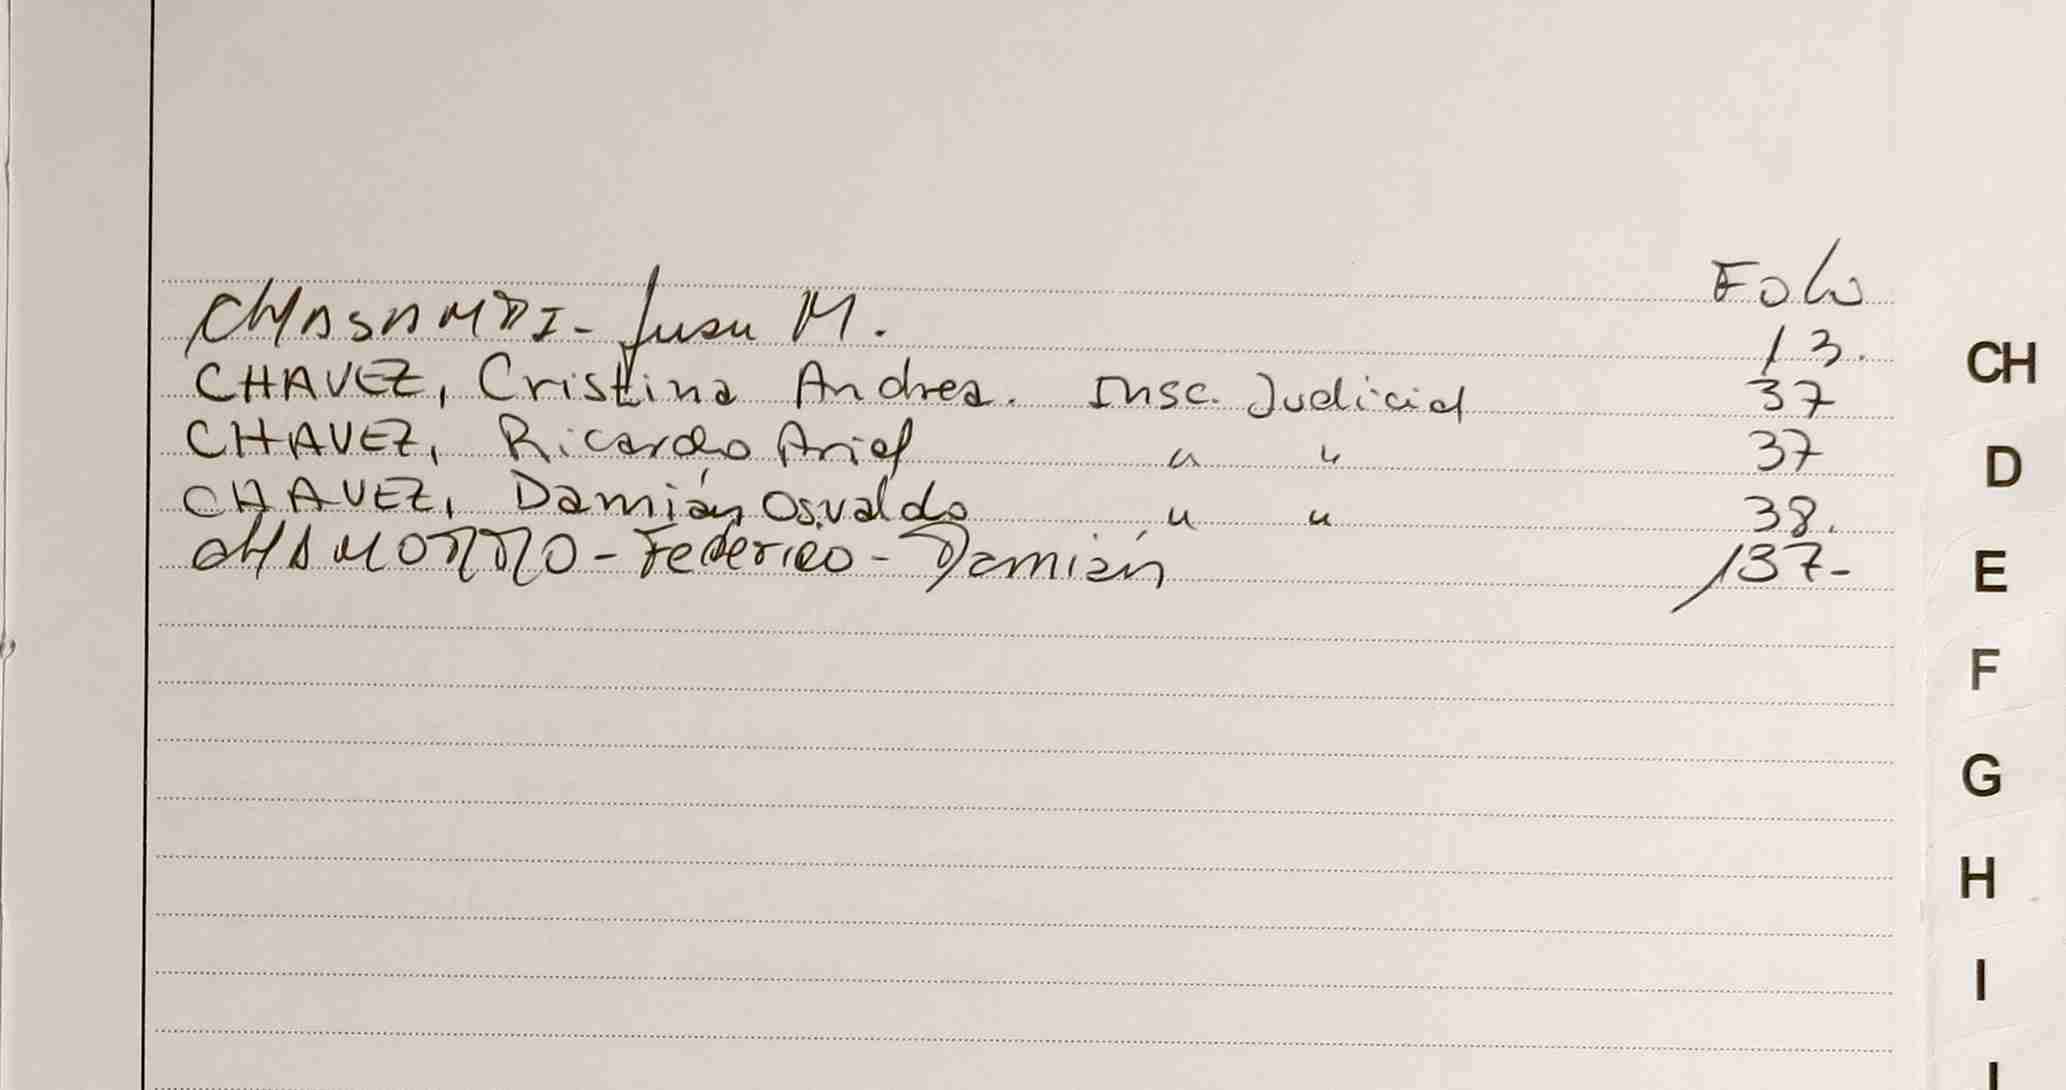 Folio
CHASAMPI - Juan M. 13.
CHAVEZ, Cristina Andrea. Insc. Judicial 37
CHAVEZ, Ricardo Ariel " " 37
CHAVEZ, Damián Osvaldo " " 38.
CHAMORRO - Federico - Damián 137-
CH
D
E
F
G
H
I